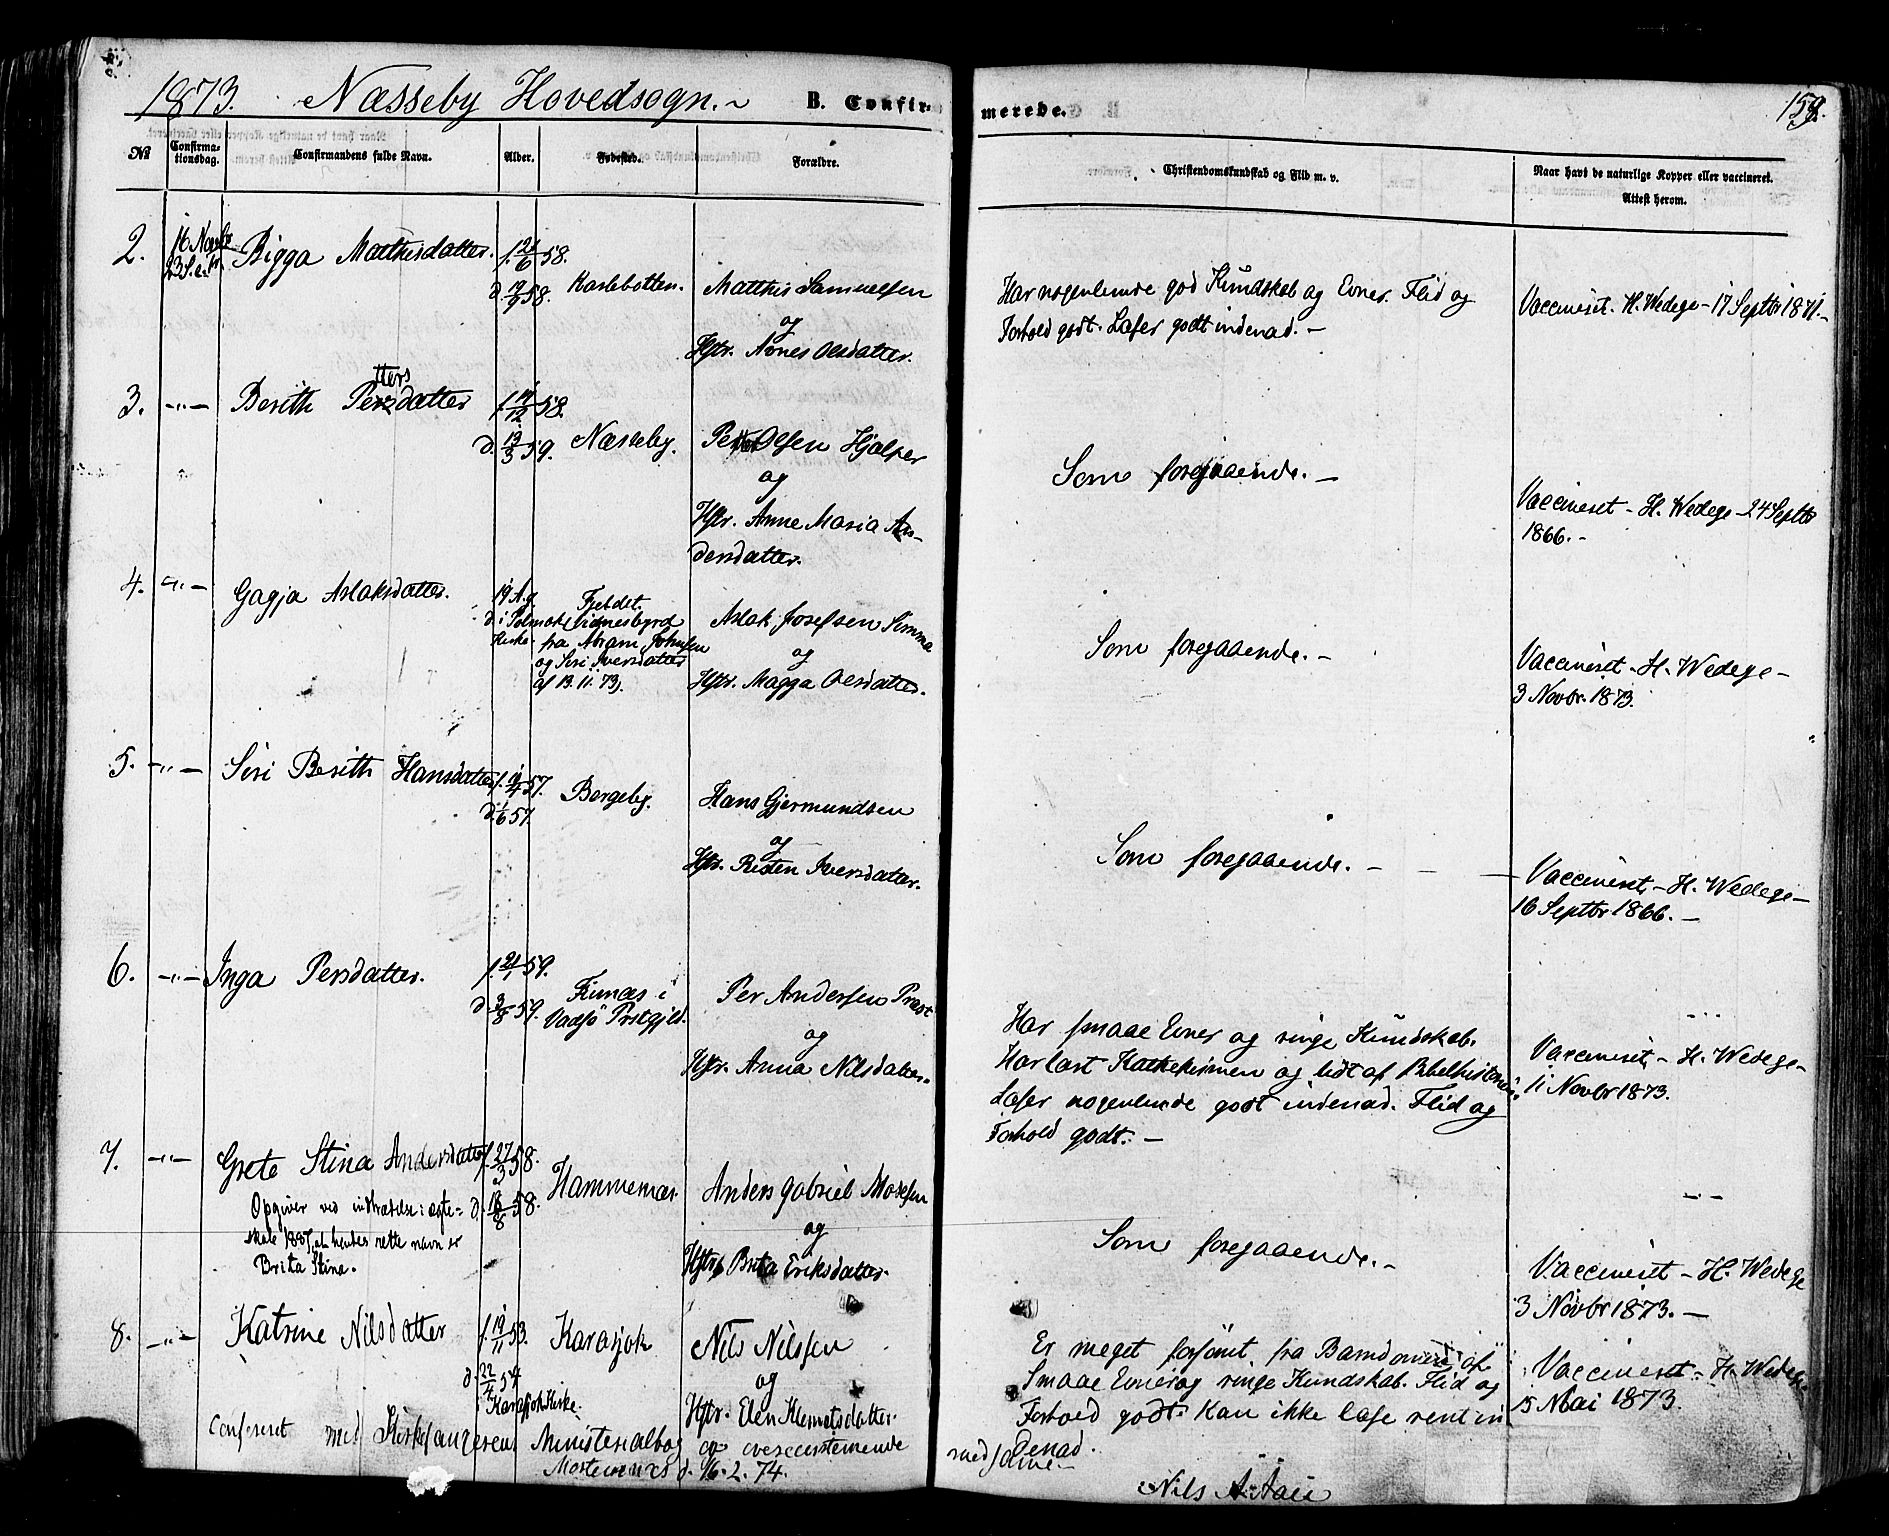 1873. Næsseby Hovedsogn. B. Confirmerede. 159.
No Confirmationsdag. Confirmandens fulde Navn. Alder. Fødested. Forældre. Christendomskundskab og Flid m. v. Naar havt de naturlige Kopper eller vaccineret. Attest herom.
2. 16 Novbr Bigga Matthisdatter. f. 21/6 58.
d. 19/9 58. Karlebotten. Matthis Samuelsen
og
Hstr. Nönes Olsdatter.
Har nogenlunde god Kundskab og Evner. Flid og
Forhold godt. Læser godt indenad. -
Vaccineret. H. Wedege - 17 Septbr 1871. -
3. -"- Berith Persdatter f. 14/12 58.
tters
d. 13/3 59. Næsseby. Petter Olsen Hjalper
og
Hstr. Anne Maria An-
dersdatter.
Som foregaaende. -
Vaccineret - H. Wedege - 24 Septbr
1866. -
4. -"- Gagja Aslaksdatter. 19 A. g.
d. i Polmak
Kirke. Fjeldet.
Vidnesbyrd
fra Abram Johnsen
og Siri Iversdatter
af 13.11.73). Aslak Josefsen Simma
og
Hstr. Magga Olsdatter.
Som foregaaende. -
Vaccineret - H. Wedege -
3 Novbr. 1873.
5. -"- Siri Berith Hansdatter f. 19/4 57.
d. 1/6 57. Bergeby. Hans Gjermundsen
og
Hstr. Risten Iversdatter.
Som foregaaende. -
Vaccineret - H. Wedege -
16 Septbr 1866. -
6. -"- Inga Persdatter. f. 21/1 59.
d. 3/8 59. i
Vadsö Prstgjld. Per Andersen Præst
og
Hstr. Anna Nilsdatter.
Har smaae Evner og ringe Kundskab.
Har læst Kathekismen og lidt af Bibelhistorien.
Læser nogenlunde godt indenad. Flid og
Forhold godt. -
Vaccineret - H. Wedege -
11 Novbr 1873.
7. -"- Grete Stina Andersdatter f. 27/3 58.
d. 18/8 58. Hammernæs. Anders Gabriel Mosesen
og
Hstr. Brita Eriksdatter.
Opgiver ved indtrædelse i ægte-
skab 1887, at hendes rette navn er
Brita Stina.
Som foregaaende. -
Vaccineret - H. Wedege
3 Novbr 1873. -
8. -"- Katrine Nilsdatter f. 19/11 53.
d. 22/4 54
Karasjok Kirke. Karasjok Nils Nilssen
og
Hstr. Elen Klemetsdatter.
Er meget forsömt fra Barndommen af
Smaae Evner og ringe Kundskab. Flid og
Forhold godt. Kan ikke læse rent in
denad.
Vaccineret - H. Wedege.
15 Mai 1873.
Confereret med Kirkesangerens Ministerialbog og overeenstemmende
med samme. -
Mortensnes d. 16.2.74.
Nils A. Aall